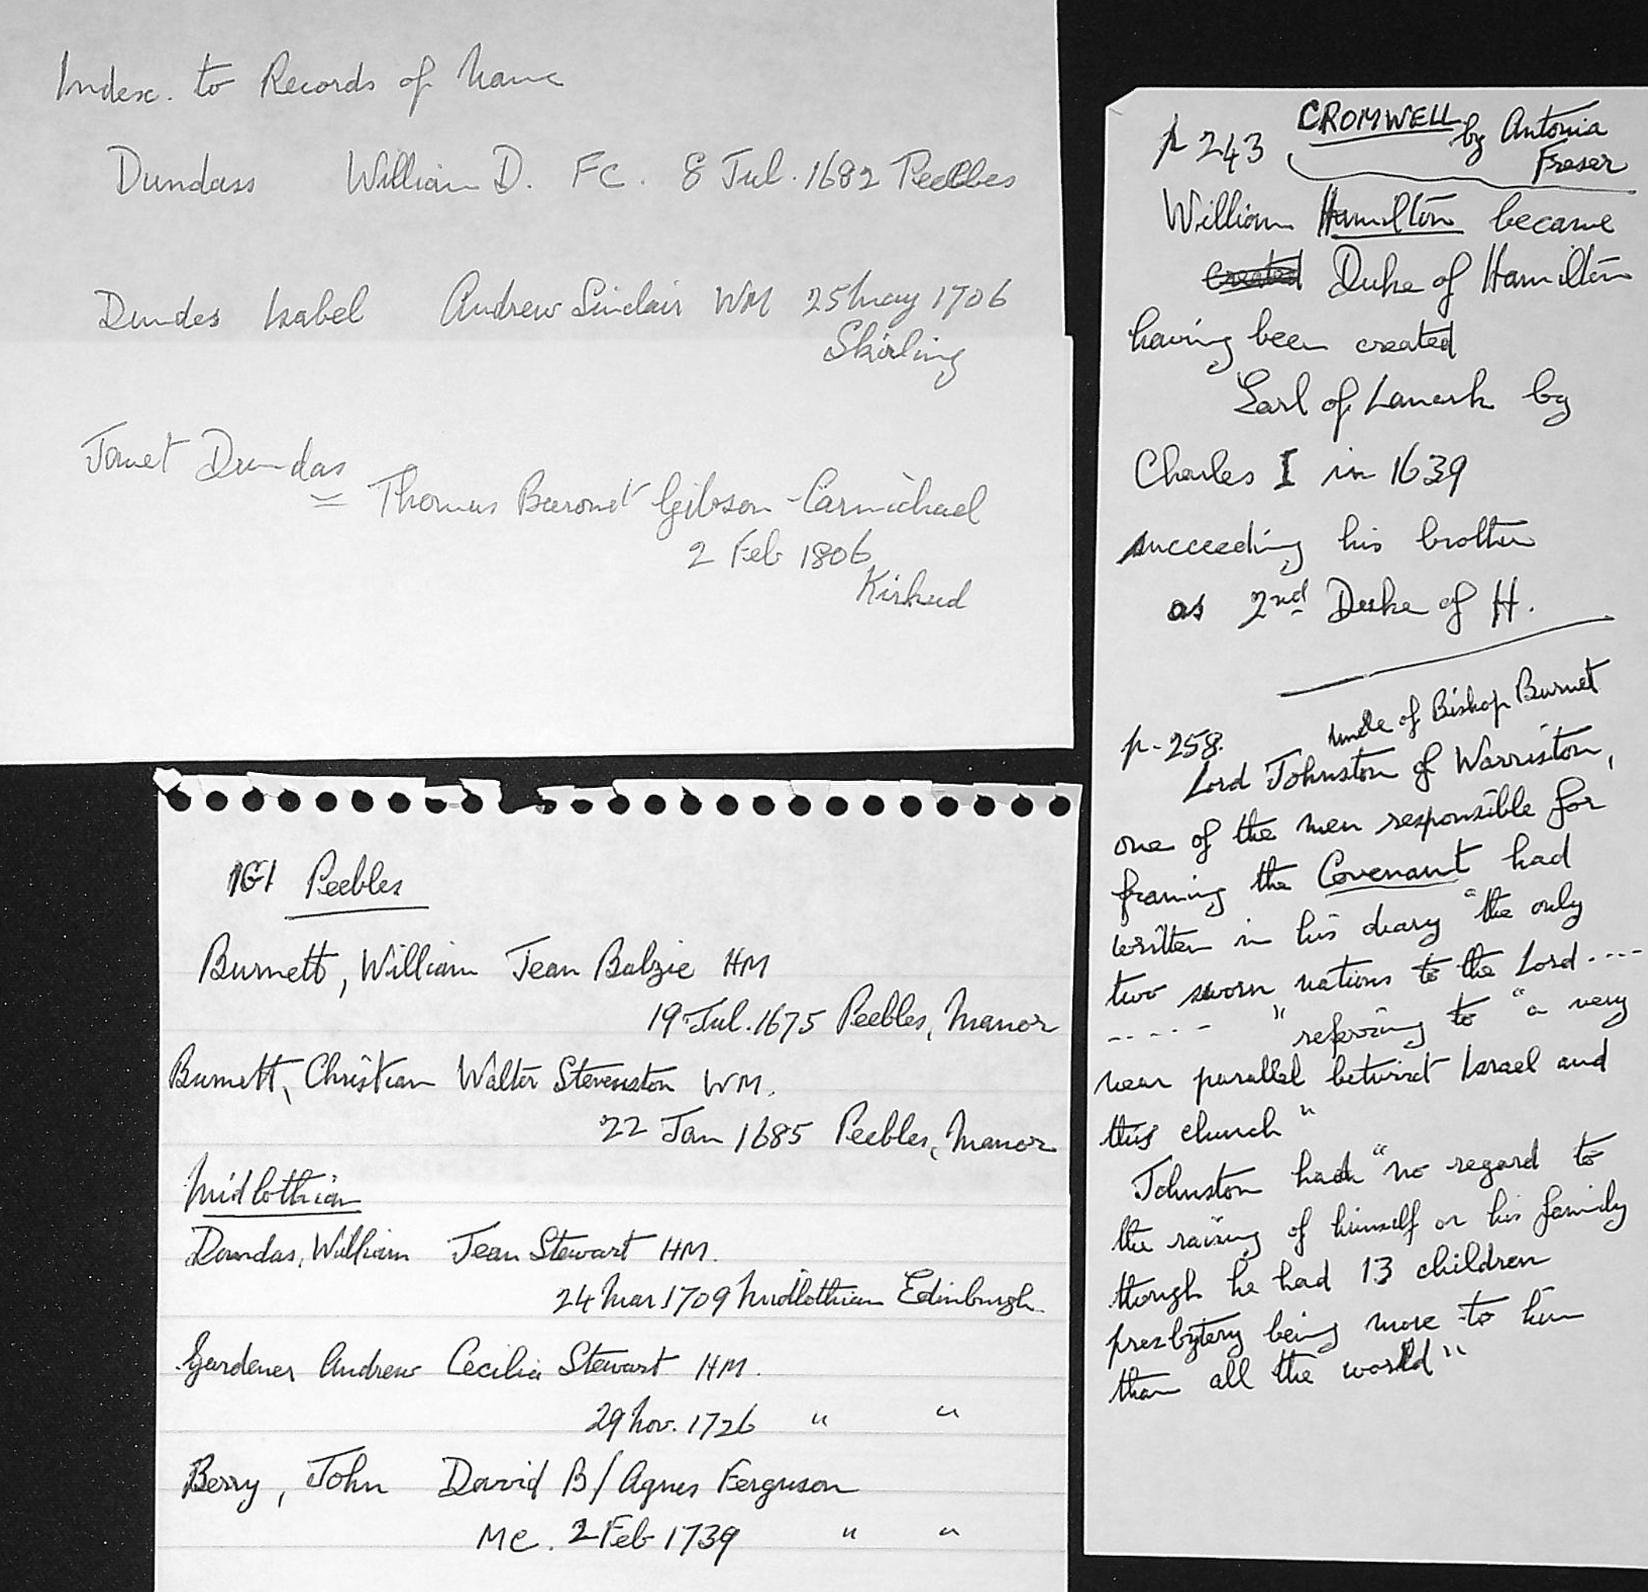 Index. to Records of Name
Dundass William D. FC. 8 Jul. 1682 Peebles
Dundes Isabel Andrew Sinclair WM 25 May 1706
Skirling
Janet Dundas
= Thomas Baronet Gibson-Carmichael
2 Feb 1806
Kirkurd
IGI Peebles
Burnett, William Jean Balzie HM
19 Jul. 1675 Peebles, Manor
Burnett, Christian Walter Stevenston WM.
22 Jan 1685 Peebles, Manor
Midlothian
Dundas, William Jean Stewart HM.
24 Mar 1709 Midlothian Edinburgh.
Gardener Andrew Cecilia Stewart HM.
29 Nov. 1726 " "
Berry, John David B/Agnes Ferguson
MC. 2 Feb 1739 " "
p 243 CROMWELL by Antonia
Fraser
William Hamilton became
created Duke of Hamilton
having been created
Earl of Lanark by
Charles I in 1639
succeeding his brother
as 2nd Duke of H.
uncle of Bishop Burnet
p-258.
Lord Johnston of Warriston,
one of the men responsible for
framing the Covenant had
written in his diary "the only
two sworn nations to the Lord ----
----- " referring to "a very
near parallel betwixt Israel and
this church"
Johnston had "no regard to
the raising of himself or his family
though he had 13 children
presbytery being more to him
than all the world"